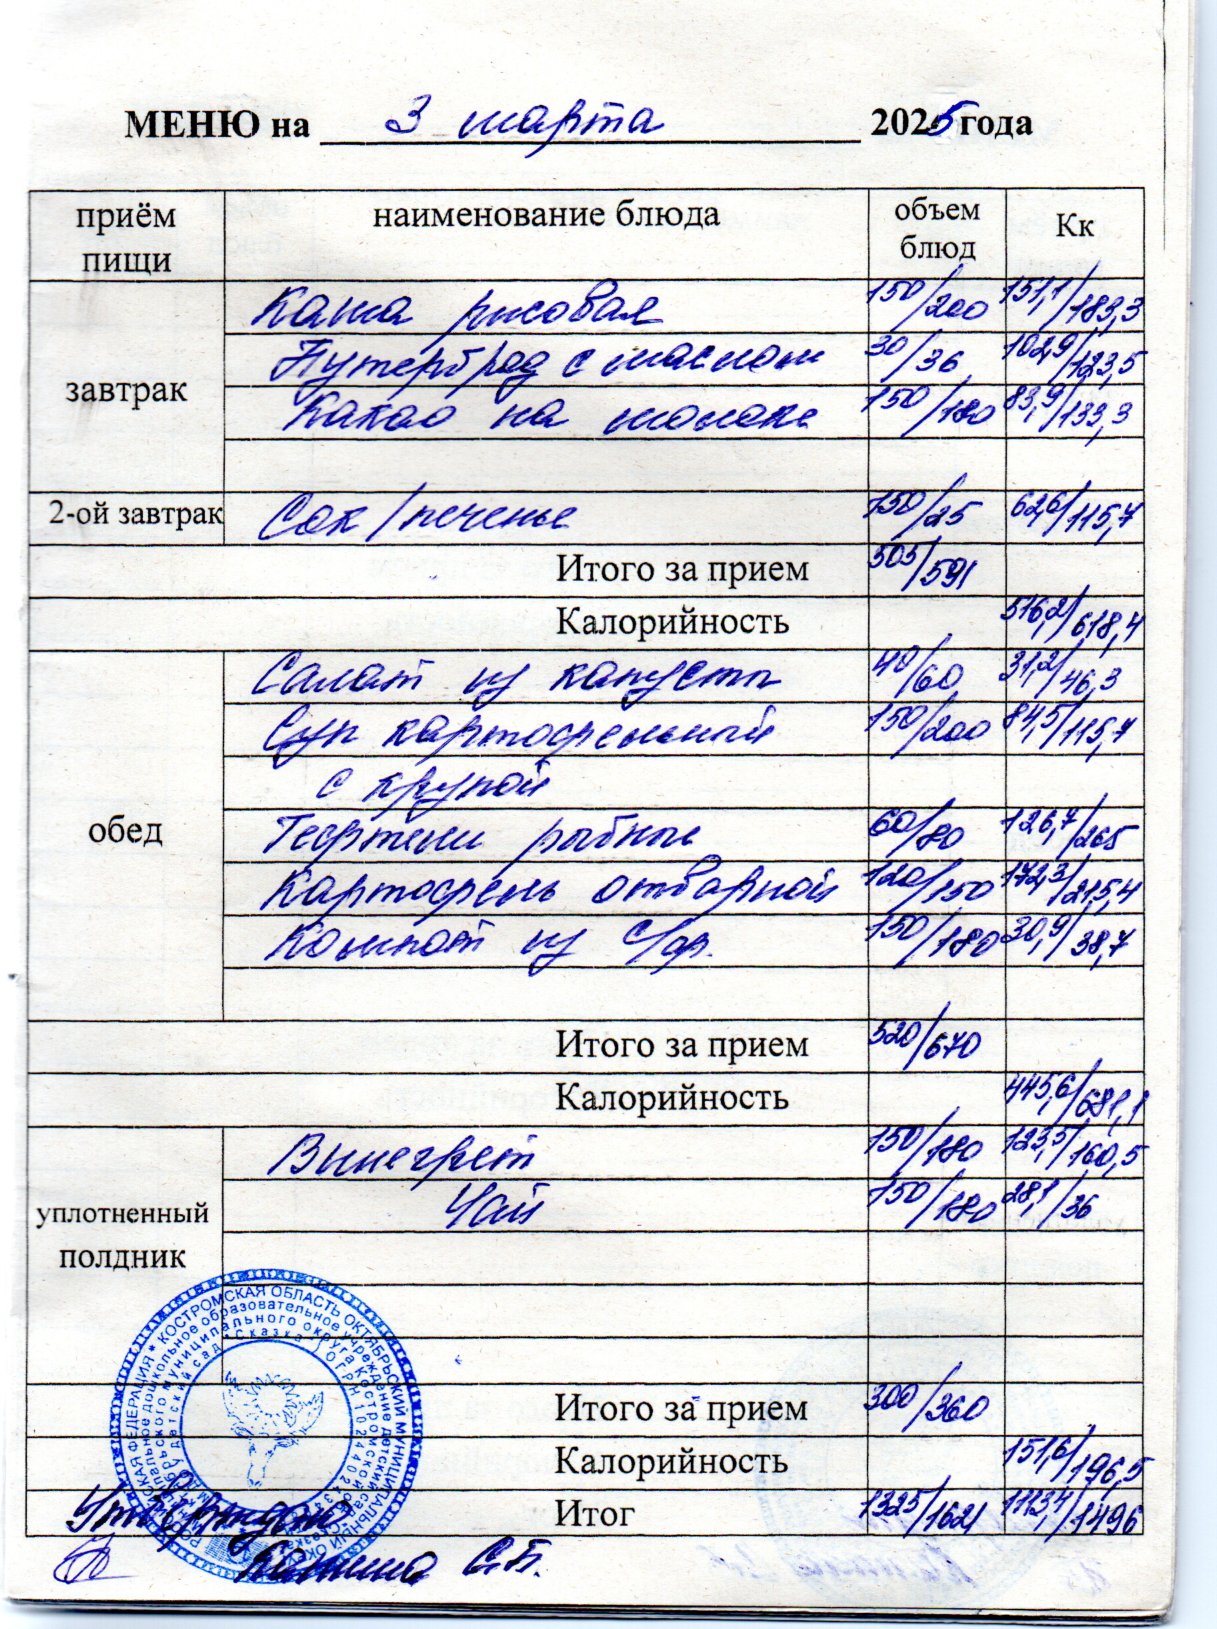 МЕНЮ на 3 марта 2025 года
приём пищи наименование блюда объем блюд Кк
завтрак
Каша рисовая 150/200 151,1/183,3
Бутерброд с маслом 30/36 102,9/123,5
Какао на молоке 150/180 83,9/133,3
2-ой завтрак Сок/печенье 150/25 62,6/115,7
Итого за прием 505/591
Калорийность 516,2/618,4
обед
Салат из капусты 40/60 31,2/46,3
Суп картофельный 150/200 84,5/115,7
с крупой
Тефтели рыбные 60/80 126,7/265
Картофель отварной 120/150 172,3/215,4
Компот из с/фр. 150/180 30,9/38,7
Итого за прием 520/670
Калорийность 445,6/681,1
уплотненный полдник
Винегрет 150/180 123,5/160,5
Чай 150/180 28,1/36
Итого за прием 300/360
Калорийность 151,6/196,5
Итог 1325/1621 1113,4/1496
РОССИЙСКАЯ ФЕДЕРАЦИЯ * КОСТРОМСКАЯ ОБЛАСТЬ ОКТЯБРЬСКИЙ МУНИЦИПАЛЬНЫЙ ОКРУГ
муниципальное дошкольное образовательное учреждение детский сад "Сказка"
Октябрьского муниципального округа Костромской
детский сад "Сказка" ОГРН
Утверждаю
С.В.